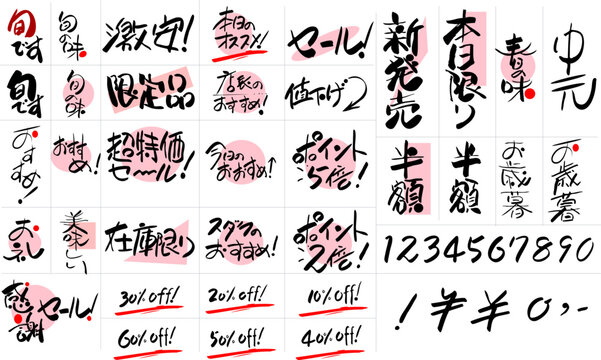 旬です
旬の味
激安!
本日の
オススメ!
セール!
旬です
旬の味
限定品
店長の
おすすめ!
値下げ
おすすめ!
おすすめ!
超特価
セール!
今日の
おすすめ!
ポイント
5倍!
お礼
美味しい
在庫限り
スタッフの
おすすめ!
ポイント
2倍!
感謝セール!
30%off!
20%off!
10%off!
60%off!
50%off!
40%off!
新発売
本日限り
春の味
中元
半額
半額
お歳暮
お歳暮
1234567890
!¥¥0,-